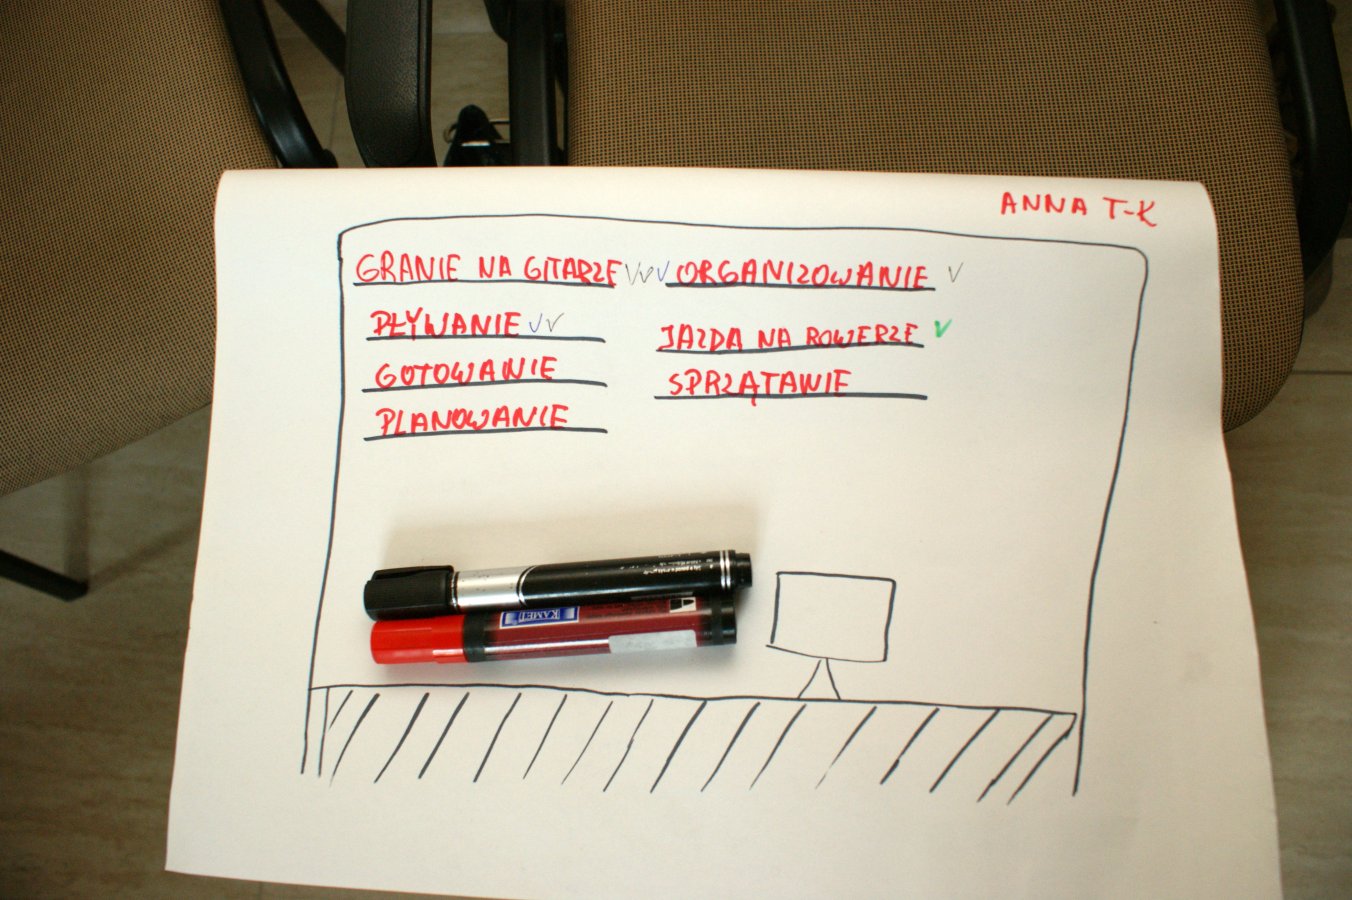 ANNA T-K
GRANIE NA GITARZE ✓✓✓
PŁYWANIE ✓✓
GOTOWANIE
PLANOWANIE
ORGANIZOWANIE ✓
JAZDA NA ROWERZE ✓
SPRZĄTANIE
KAMET